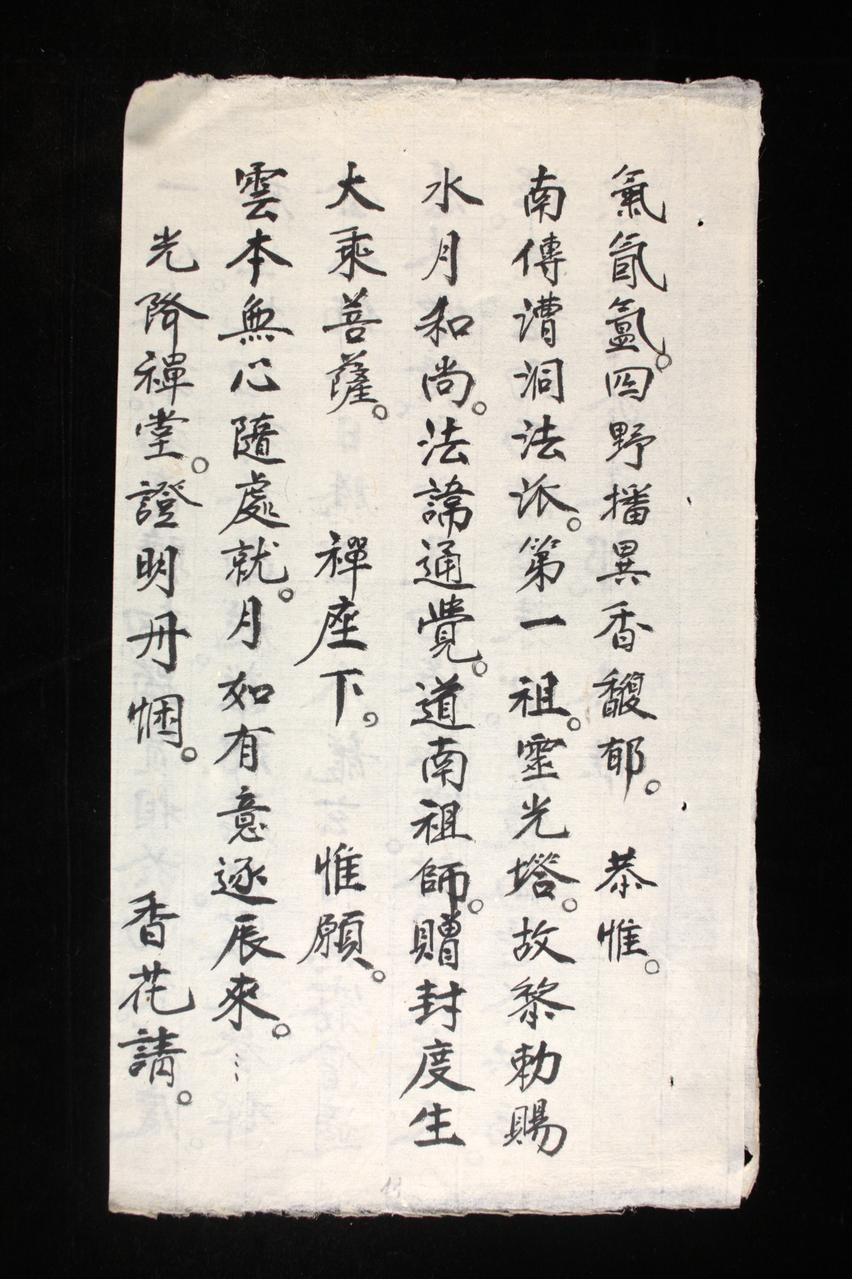 氣氤氳。四野播異香馥郁。恭惟。
南傳漕洞法派。第一祖。靈光塔。故黎勅賜
水月和尚。法諱通覺。道南祖師。贈封度生
大乘菩薩。禪座下。惟願。
雲本無心隨處就。月如有意逐辰來。
光降禪堂。證明丹悃。香花請。